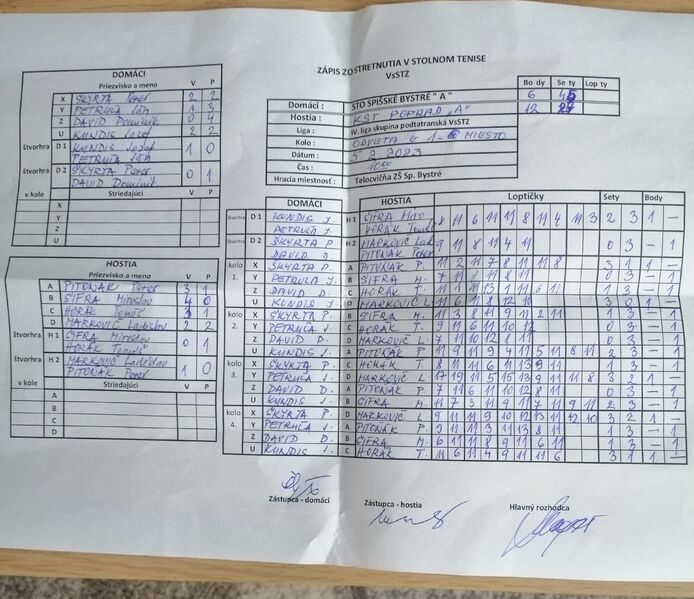 ZÁPIS ZO STRETNUTIA V STOLNOM TENISE
VsSTZ
Bo dy Se ty Lop ty
Domáci : STO SPIŠSKÉ BYSTRÉ " A " 6
Hostia : KST POPRAD „A" 12
Liga : IV. liga skupina podtatranská VsSTZ
Kolo : ODVETA O 1. MIESTO
Dátum : 5. 2. 2023
Čas : 10
Hracia miestnosť : Telocvičňa ZŠ Sp. Bystré
DOMÁCI
Priezvisko a meno V P
X ŠKYRTA Peter 2 2
Y PETRUĽA Ján 1 3
Z DAVID Dominik 0 4
U KUNDIS Jozef 2 2
štvorhra D 1 KUNDIS Jozef 1 0
PETRUĽA Ján
štvorhra D 2 ŠKYRTA Peter 0 1
DAVID Dominik
v kole Striedajúci V P
X
Y
Z
U
HOSTIA
Priezvisko a meno V P
A PITOŇAK Peter 3 1
B ŠIFRA Miroslav 4 0
C HORÁK Tomáš 3 1
D MARKOVIČ Ladislav 2 2
štvorhra H 1 ŠIFRA Miroslav 0 1
HORÁK Tomáš
štvorhra H 2 MARKOVIČ Ladislav 1 0
PITOŇAK Peter
v kole Striedajúci V P
A
B
C
D
DOMÁCI HOSTIA Loptičky Sety Body
štvorhra D 1 KUNDIS J. H 1 ŠIFRA Miro 8 11 6 11 11 8 11 4 11 3 2 3 1 –
PETRUĽA J. HORÁK Tomáš
štvorhra D 2 ŠKYRTA P. H 2 MARKOVIČ Lad. 9 11 8 11 4 11 0 3 – 1
DAVID D. PITOŇAK Peter
kolo 1. X ŠKYRTA P. A PITOŇAK P. 11 2 11 7 8 11 11 8 3 1 1 –
Y PETRUĽA J. B ŠIFRA M. 7 11 8 11 8 11 0 3 – 1
Z DAVID D. C HORÁK T. 1 3 – 1
U KUNDIS J. D MARKOVIČ L. 11 6 11 8 12 10 3 0 1 –
kolo 2. X ŠKYRTA P. B ŠIFRA M. 11 13 8 11 9 11 2 11 1 3 – 1
Y PETRUĽA J. C HORÁK T. 9 11 6 11 10 12 0 3 – 1
Z DAVID D. D MARKOVIČ L. 7 11 10 12 8 11 0 3 – 1
U KUNDIS J. A PITOŇAK P. 11 9 11 9 4 11 5 11 8 11 2 3 – 1
kolo 3. X ŠKYRTA P. C HORÁK T. 8 11 11 6 11 13 9 11 1 3 – 1
Y PETRUĽA J. D MARKOVIČ L. 17 19 11 5 15 13 9 11 11 8 3 2 1 –
Z DAVID D. A PITOŇAK P. 7 11 6 11 10 12 8 11 0 3 – 1
U KUNDIS J. B ŠIFRA M. 11 7 3 11 9 11 11 7 9 11 2 3 – 1
kolo 4. X ŠKYRTA P. D MARKOVIČ L. 9 11 11 9 10 12 13 11 12 10 3 2 1 –
Y PETRUĽA J. A PITOŇAK P. 9 11 11 3 11 13 8 11 1 3 – 1
Z DAVID D. B ŠIFRA M. 6 11 11 8 9 11 6 11 1 3 – 1
U KUNDIS J. C HORÁK T. 8 11 11 9 11 4 11 6 3 1 1 –
Zástupca - domáci
Zástupca - hostia
Hlavný rozhodca